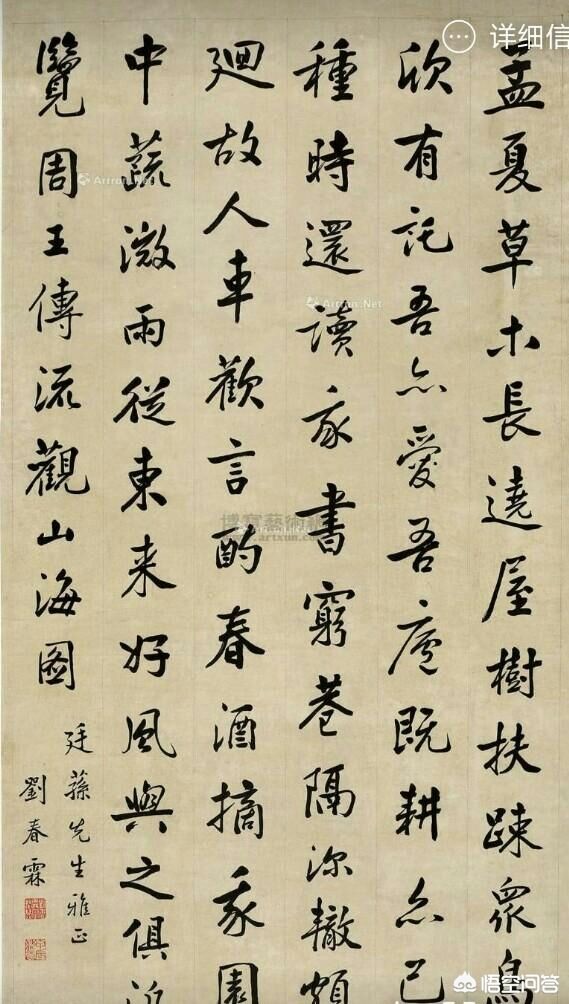 孟夏草木長遶屋樹扶踈眾鳥
欣有託吾亦愛吾廬既耕亦已
種時還讀我書窮巷隔深轍頗
廻故人車歡言酌春酒摘我園
中蔬微雨從東来好風與之俱
覽周王傳流觀山海圖
廷蓀先生雅正
劉春霖
详细信
Artxun.Net
博寶藝術網
www.artxun.com
悟空问答